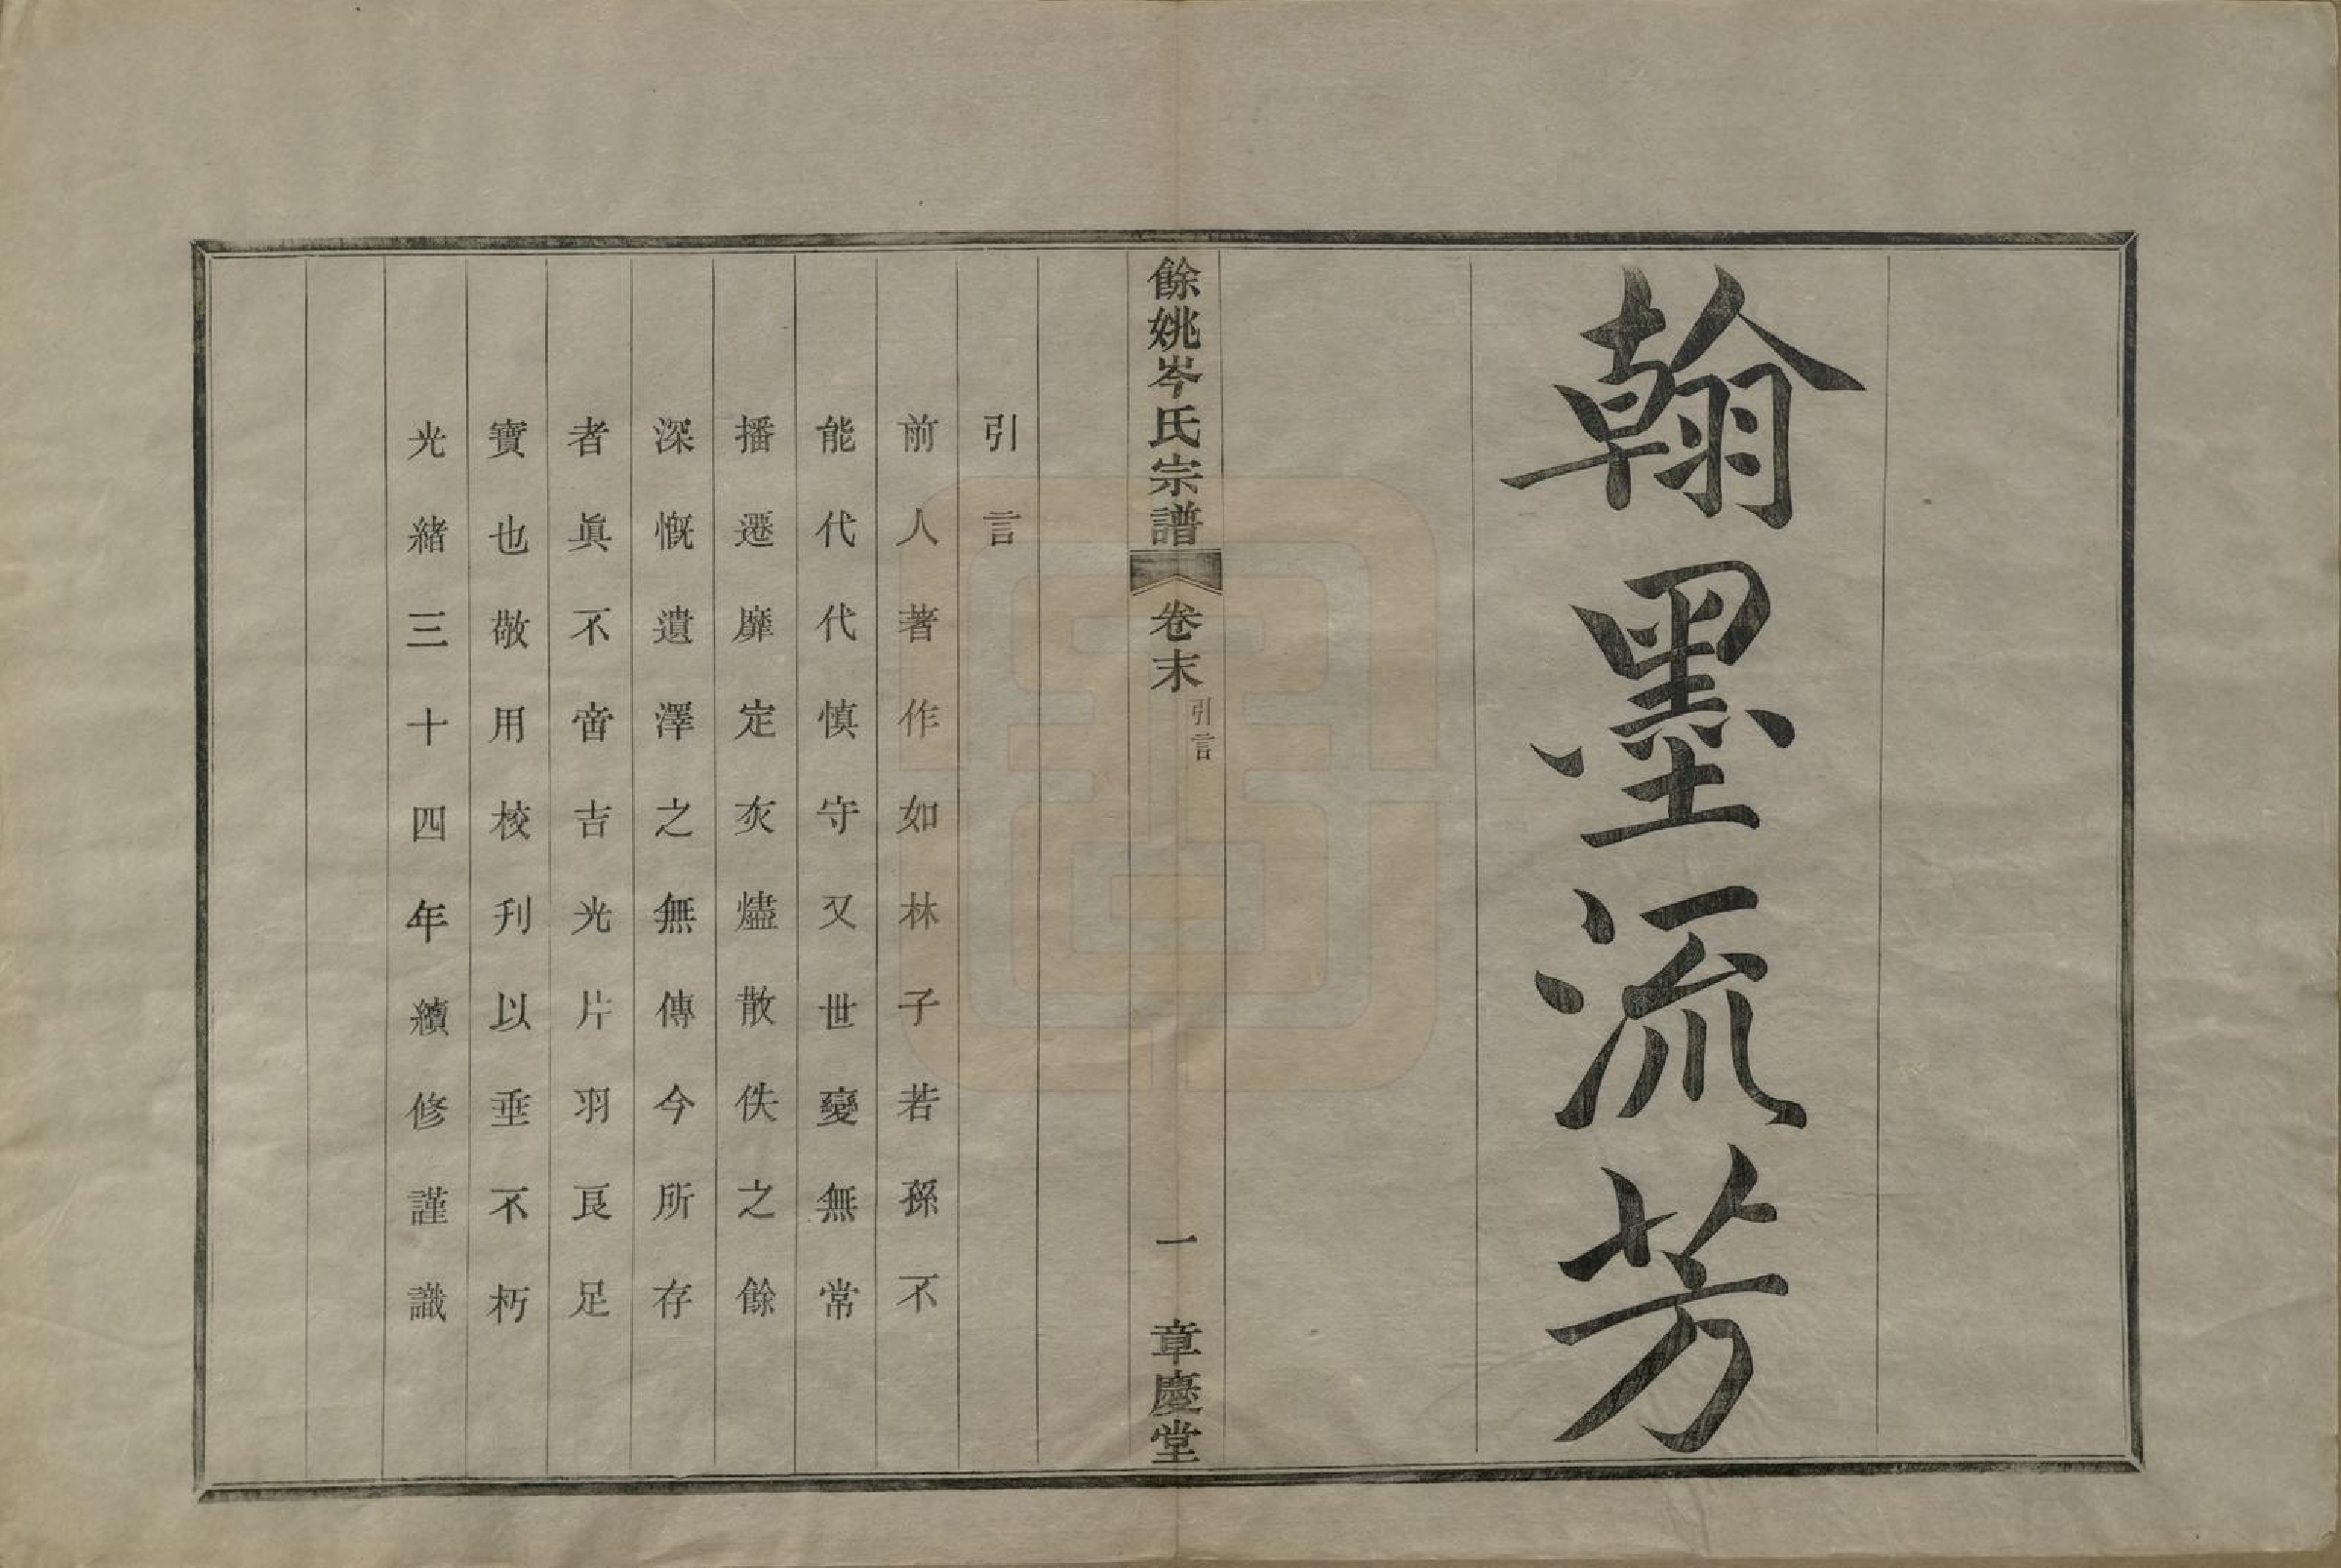 翰墨流芳
餘姚岑氏宗譜
卷末
引言
一
章慶堂
引言
前人著作如林子若孫不
能代代慎守又世變無常
播遷靡定灰燼散佚之餘
深慨遺澤之無傳今所存
者眞不啻吉光片羽良足
寶也敬用校刋以垂不朽
光緒三十四年續修謹識